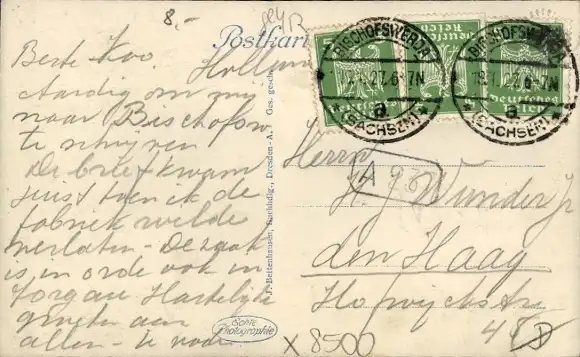 8.-
Postkarte
Beste Koo.
aardig om mij
naar Bischofsw
te schrijven
De brief kwam
juist toen ik de
fabriek wilde
verlaten - De zaak
is in orde ook in
Torgau Hartelijke
groeten aan
allen - te
BISCHOFSWERDA
27. 6-7N
a
(SACHSEN)
BISCHOFSWERDA
27. 6-7N
a
(SACHSEN)
Deutsches Reich
J. Bettenhausen, Buchhdlg., Dresden-A. Ges. gesch.
Herrn
Wunder jr
den Haag
Echte Photographie
X 8500